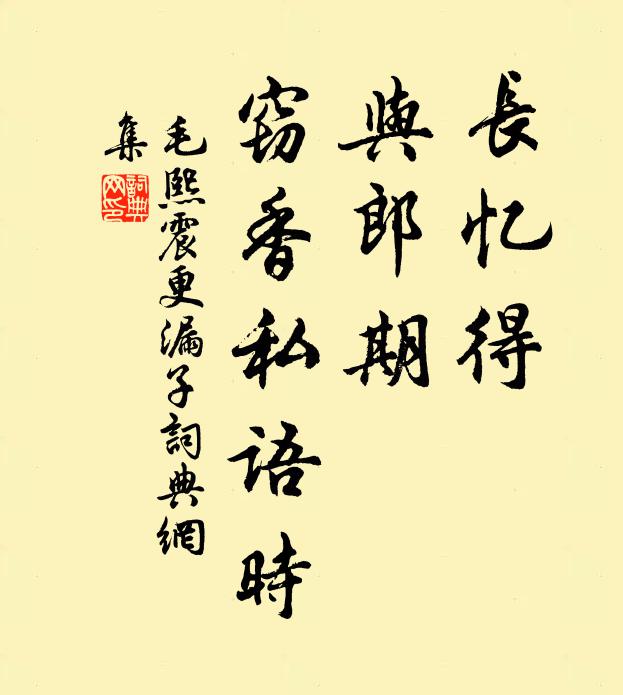 長忆得
與郎期
窃香私語時
毛熙震更漏子詞典網
集
詞典
网印